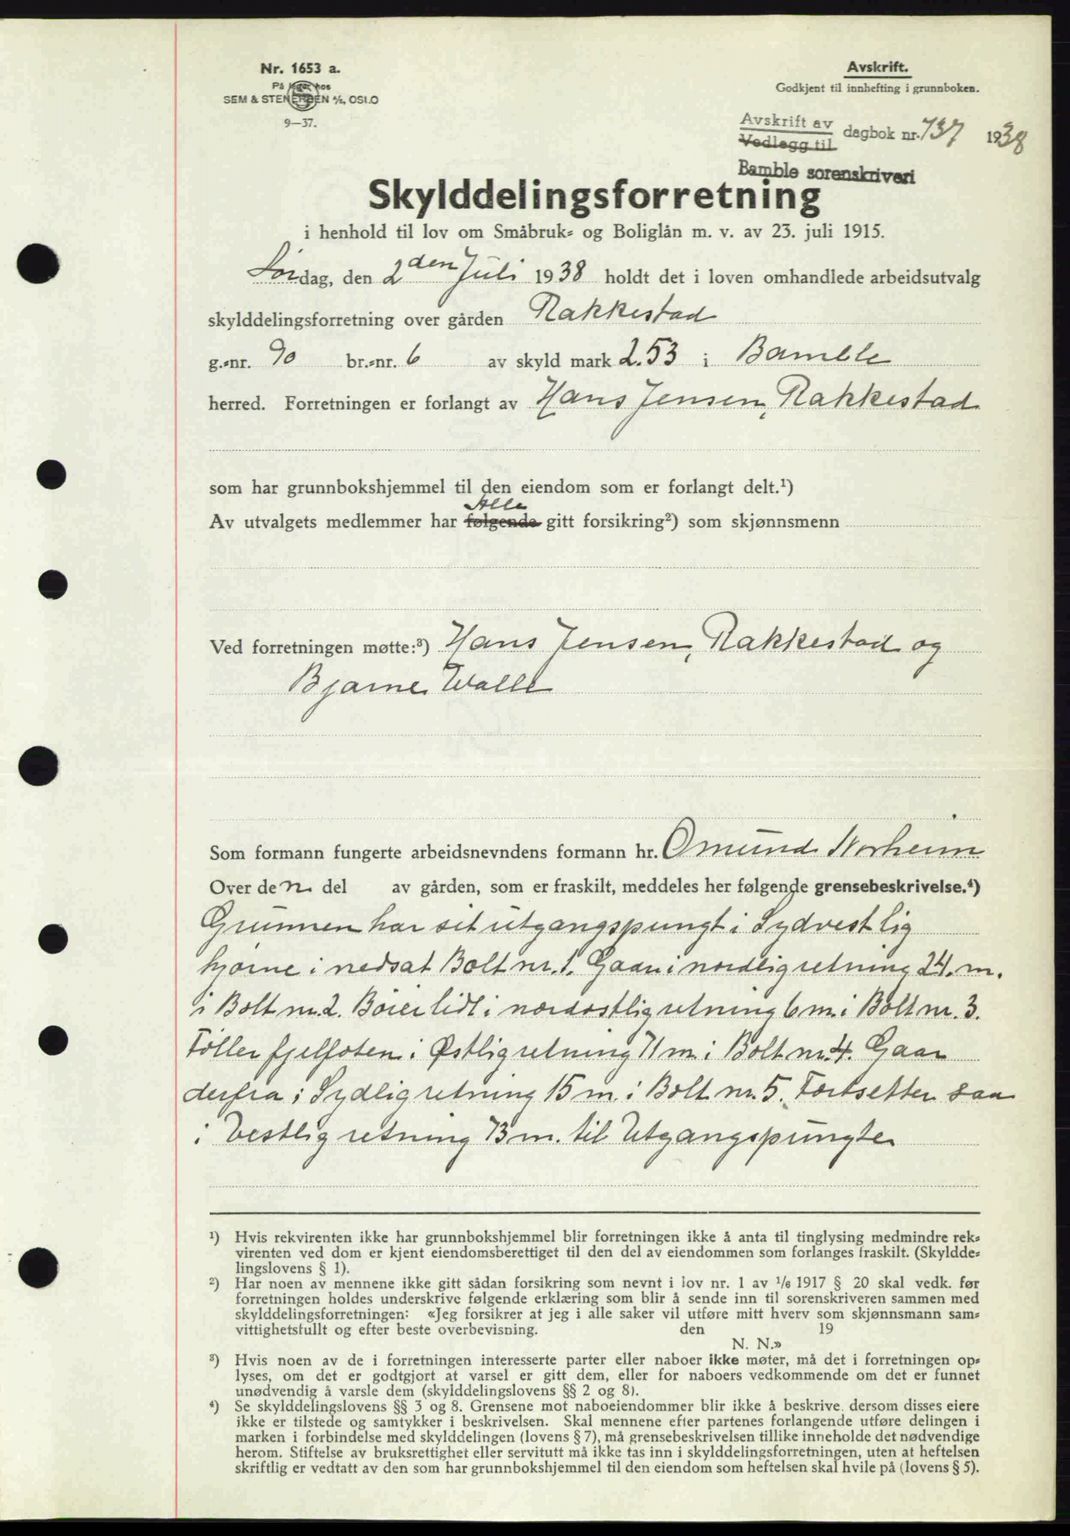 Nr. 1653 a.
På lager hos
SEM & STENERSEN A/S, OSLO
9—37.
Avskrift.
Godkjent til innhefting i grunnboken.
Avskrift av
Vedlegg til
dagbok nr. 737 1938
Bamble sorenskriveri
Skylddelingsforretning
i henhold til lov om Småbruk- og Boliglån m. v. av 23. juli 1915.
Lørdag, den 2den Juli 1938 holdt det i loven omhandlede arbeidsutvalg
skylddelingsforretning over gården Rakkestad
g.-nr. 90 br.-nr. 6 av skyld mark 2.53 i Bamble
herred. Forretningen er forlangt av Hans Jensen, Rakkestad
som har grunnbokshjemmel til den eiendom som er forlangt delt.¹)
Alle
Av utvalgets medlemmer har følgende gitt forsikring²) som skjønnsmenn
Ved forretningen møtte:³) Hans Jensen, Rakkestad og
Bjarne Valle
Som formann fungerte arbeidsnevndens formann hr. Omund Norheim
Over den del av gården, som er fraskilt, meddeles her følgende grensebeskrivelse.⁴)
Grunnen har sit utgangspungt i Sydvestlig
hjørne i nedsat Bolt nr. 1. Gaar i nordlig retning 24. m.
i Bolt nr. 2. Bøier lidt i nordostlig retning 6 m. i Bolt nr. 3.
Føller fjelfoten i Østlig retning 71 m i Bolt nr. 4. Gaar
derfra i Sydlig retning 15 m. i Bolt nr. 5. Fortsetter saa
i Vestlig retning 73 m. til Utgangspungte
¹) Hvis rekvirenten ikke har grunnbokshjemmel blir forretningen ikke å anta til tinglysing medmindre rek-
virenten ved dom er kjent eiendomsberettiget til den del av eiendommen som forlanges fraskilt. (Skyldde-
lingslovens § 1).
²) Har noen av mennene ikke gitt sådan forsikring som nevnt i lov nr. 1 av 1/6 1917 § 20 skal vedk. før
forretningen holdes underskrive følgende erklæring som blir å sende inn til sorenskriveren sammen med
skylddelingsforretningen: «Jeg forsikrer at jeg i alle saker vil utføre mitt hverv som skjønnsmann sam-
vittighetsfullt og efter beste overbevisning. den 19
N. N.»
³) Hvis noen av de i forretningen interesserte parter eller naboer ikke møter, må det i forretningen op-
lyses, om det er godtgjort at varsel er gitt dem, eller for naboers vedkommende om det er funnet
unødvendig å varsle dem (skylddelingslovens §§ 2 og 8).
⁴) Se skylddelingslovens §§ 3 og 8. Grensene mot naboeiendommer blir ikke å beskrive, dersom disses eiere
ikke er tilstede og samtykker i beskrivelsen. Skal mennene efter partenes forlangende utføre delingen i
marken i forbindelse med skylddelingen (lovens § 7), må grensebeskrivelsen tillike inneholde det nødvendige
herom. Stiftelse av bruksrettighet eller servitutt må ikke tas inn i skylddelingsforretningen, uten at heftelsen
skriftlig er vedtatt av den som har grunnbokshjemmel til den eiendom som heftelsen skal hvile på (lovens § 5).